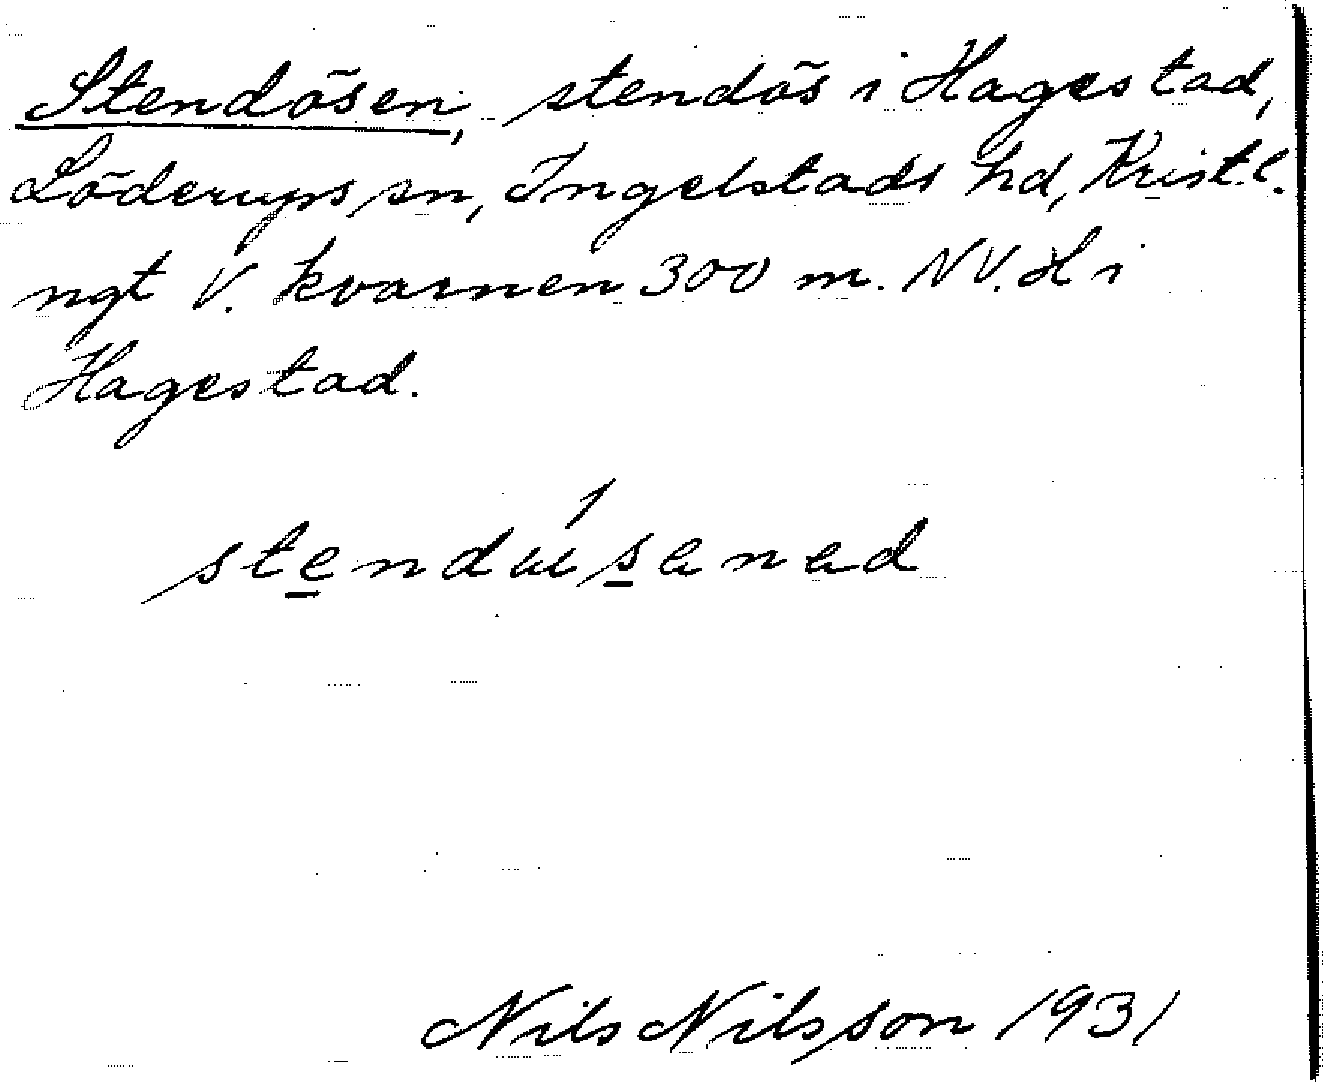 Stendösen, stendös i Hagestad,
Löderups sn, Ingelstads hd, Krist.l.
ngt V. kvarnen 300 m. NV. H i
Hagestad.
Nils Nilsson 1931